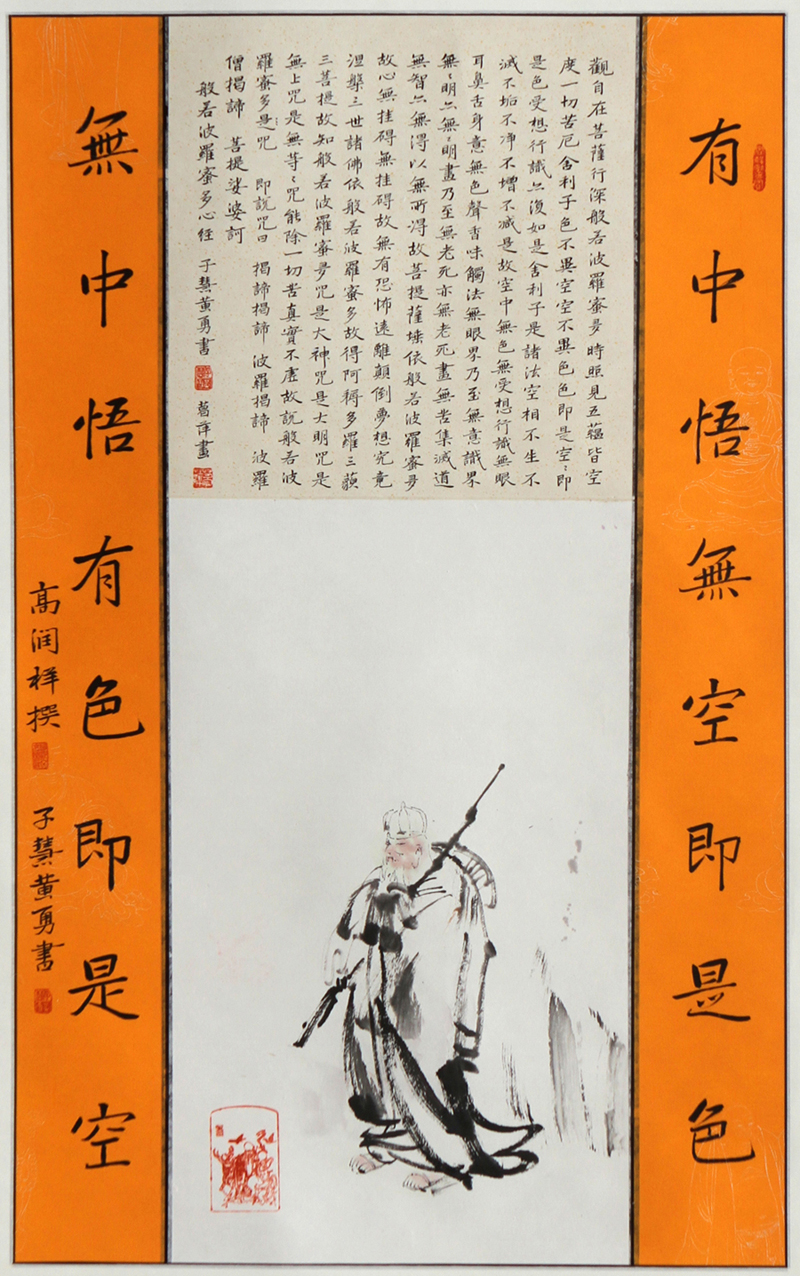 有中悟無空即是色
觀自在菩薩行深般若波羅蜜多時照見五蘊皆空
度一切苦厄舍利子色不異空空不異色色即是空〻即
是色受想行識亦復如是舍利子是諸法空相不生不
滅不垢不淨不增不減是故空中無色無受想行識無眼
耳鼻舌身意無色聲香味觸法無眼界乃至無意識界
無〻明亦無〻明盡乃至無老死亦無老死盡無苦集滅道
無智亦無得以無所得故菩提薩埵依般若波羅蜜多
故心無挂碍無挂碍故無有恐怖遠離顛倒夢想究竟
涅槃三世諸佛依般若波羅蜜多故得阿耨多羅三藐
三菩提故知般若波羅蜜多咒是大神咒是大明咒是
無上咒是無等〻咒能除一切苦真實不虛故說般若波
羅蜜多是咒 即說咒曰 揭諦揭諦 波羅揭諦 波羅
僧揭諦 菩提娑婆訶
般若波羅蜜多心經 子慧黃勇書 葛萍畫
無中悟有色即是空
高润祥撰
子慧黄勇書